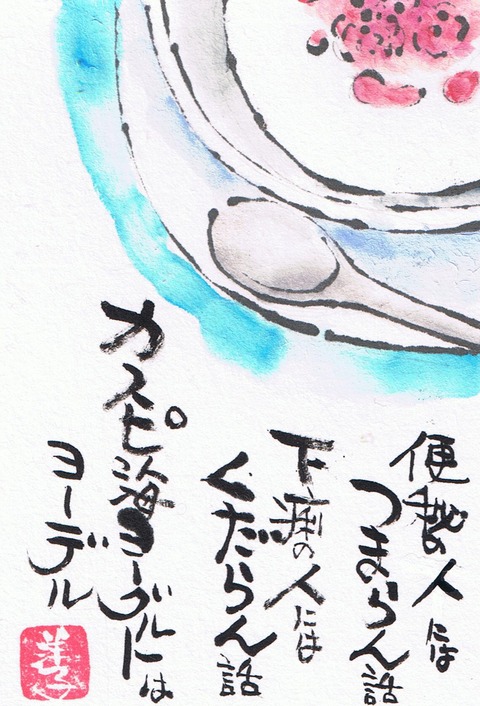 便秘の人には
つまらん話
下痢の人には
くだらん話
カスピ海ヨーグルトは
ヨーデル